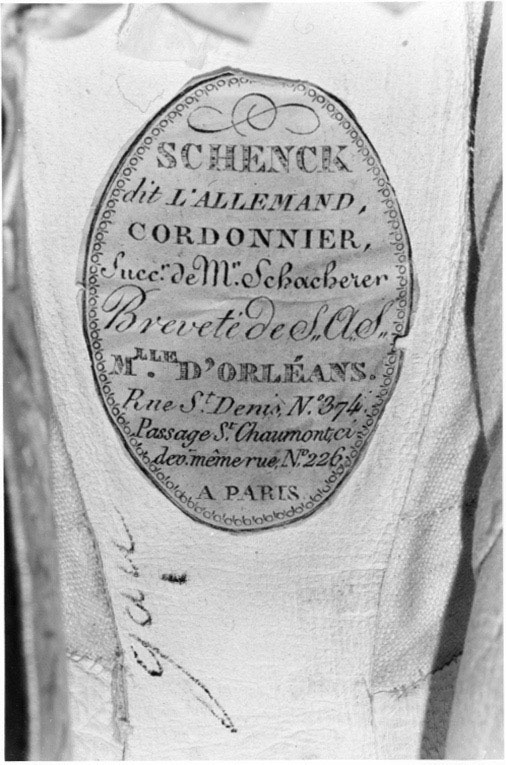 SCHENCK
dit L'ALLEMAND,
CORDONNIER,
Succr. de Mr. Schacherer
Breveté de S,, A,, S,,
MLLE. D'ORLÉANS.
Rue St. Denis, No. 374,
Passage St. Chaumont, ci
dev. même rue, No. 226,
A PARIS